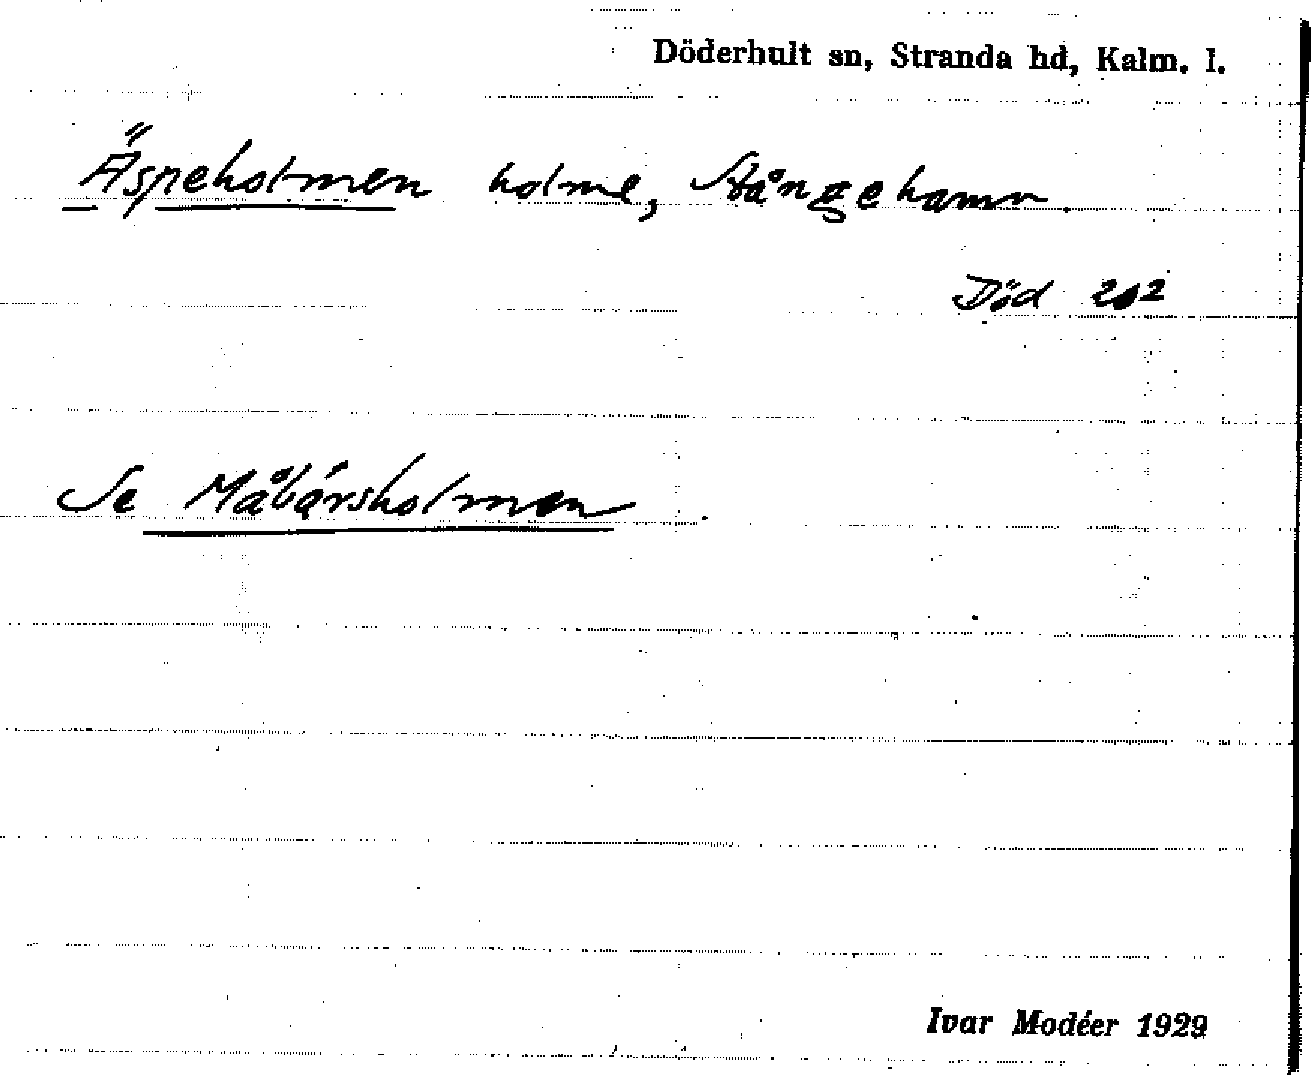 Döderhult sn, Stranda hd, Kalm. l.
Äspeholmen holme, Stångehamn.
Död 202
Se Måbärsholmen
Ivar Modéer 1929